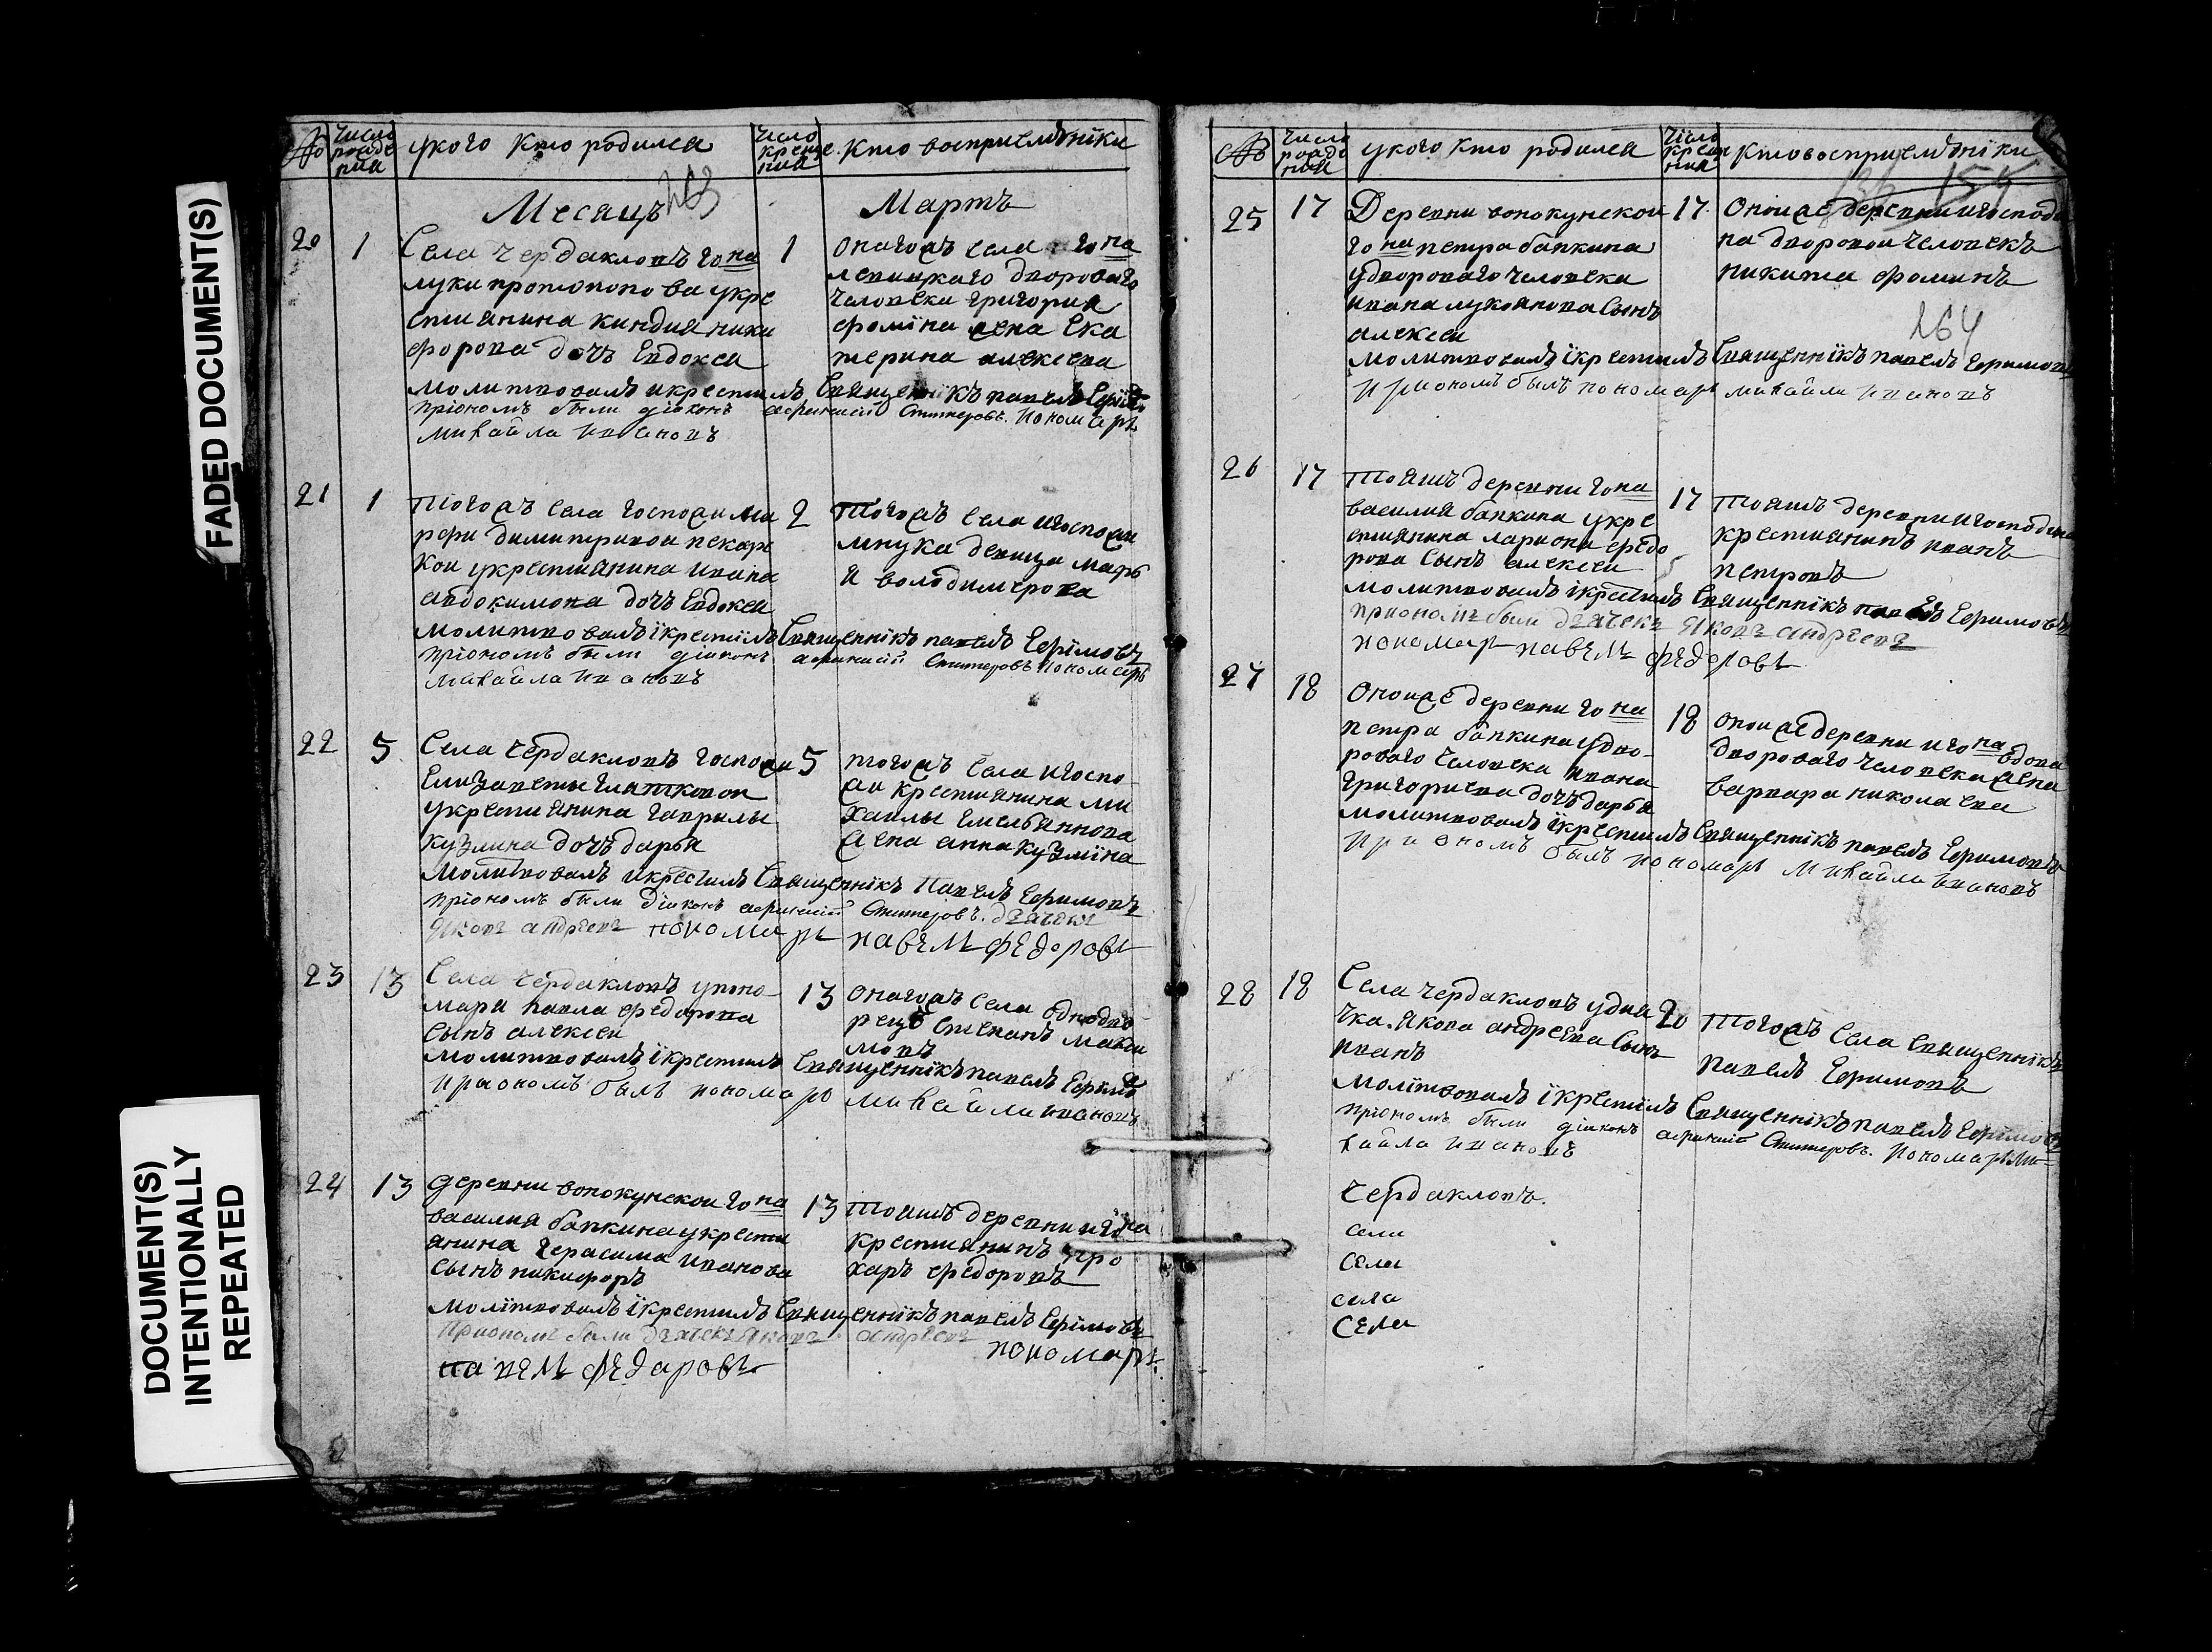 FADED DOCUMENT(S)
DOCUMENT(S)
INTENTIONALLY
REPEATED
№
Число рожде ния
у кого кто родился
Число креще ния
кто восприемники
263
Месяцъ
Мартъ
20
1
Села Чердакловъ гона
луки протопопова укре
стианина киндия ники
форова дочъ Евдокея
1
оногожъ села гона
левицкого дворового
человека григория
фомина жена Ека
терина алексеева
молитвовалъ и крестилъ Священникъ павелъ Ефим
приономъ были дїаконъ афанасий Стиперовъ. Пономарь
михайла ивановъ
21
1
тогожъ села госпожи ма
рфи димитривои пекар
кои укрестианина ивана
авдокимова дочъ Евдокея
2
тогожъ села игоспожи
внука девица марь
я володимерова
молитвовалъ їкрестїлъ Священнїкъ павелъ Ефїмовъ
прїономъ были дїаконъ афанасий Стиперовъ Пономарь
михайла ивановъ
22
5
Села Чердакловъ госпожи
Елизаветы глатковои
укрестианина гаврилы
кузмина дочъ дарья
5
тогожъ села игоспо
жи крестианина ми
хаилы Емельяннова
жена анна кузмїна
Молитвовалъ и крестилъ Священнїкъ Павелъ Ефимовъ
прїономъ были дїаконъ афанасий Стиперовъ. дьячекъ
Яковъ андреевъ пономарь павелъ Федоровъ
23
13
Села Чердакловъ упоно
маря павла федорова
сынъ алексеи
13
оногожъ села однодво
рецъ степанъ макси
мовъ
молитвовалъ їкрестилъ Священнїкъ павелъ Ефїмо
приономъ былъ пономарь михайла ивановъ
24
13
деревни вонокунскои гона
василия бапкина укрести
янина герасима иванова
сынъ никифоръ
13
тояжъ деревни игона
крестиянинъ про
харъ федоровъ
молїтвовалъ їкрестилъ Священнїкъ павелъ Ефїмовъ
Приономъ были дьячекъ Яковъ андреевъ пономарь
павелъ Федаровъ
№
Число рожде ния
у кого кто родился
Число крещ ния
кто восприемнїки
154
25
17
Деревни вонокунскои
гона петра бапкина
удворового человека
ивана лукоянова сынъ
алексеи
17
Оноиже деревни игосподи
на дворовои человекъ
никита фоминъ
264
молитвовалъ їкрестилъ Священнїкъ павелъ Ефимовъ
приономъ былъ пономарь михайла ивановъ
26
17
Тояжъ деревни гона
василия бапкина укре
стианина лариона федо
рова сынъ алексеи
17
тояжъ деревни игосподина
крестиянинъ иванъ
петровъ
молитвовалъ їкрестилъ Священнїкъ павелъ Ефимовъ
приономъ были дьячекъ Яковъ андреевъ
пономарь павелъ Федоровъ
27
18
Оноиже деревни гона
петра бапкина удво
рового человека ивана
григориева дочъ дарья
18
оноиже деревни игона вдова
дворового человека жена
варвара николаева
молитвовалъ їкрестилъ Священнїкъ павелъ Ефимовъ
при ономъ былъ пономарь Михайла ивановъ
28
18
Села Чердакловъ удья
чка Якова андреева сынъ
иванъ
20
тогожъ села Священнїкъ
Павелъ Ефимовъ
молїтвовалъ їкрестїлъ Священнїкъ павелъ Ефїмовъ
прїономъ были дїаконъ афанасий Стиперовъ. Пономарь Ми
хайла ивановъ
Чердакловъ.
села
села
села
села